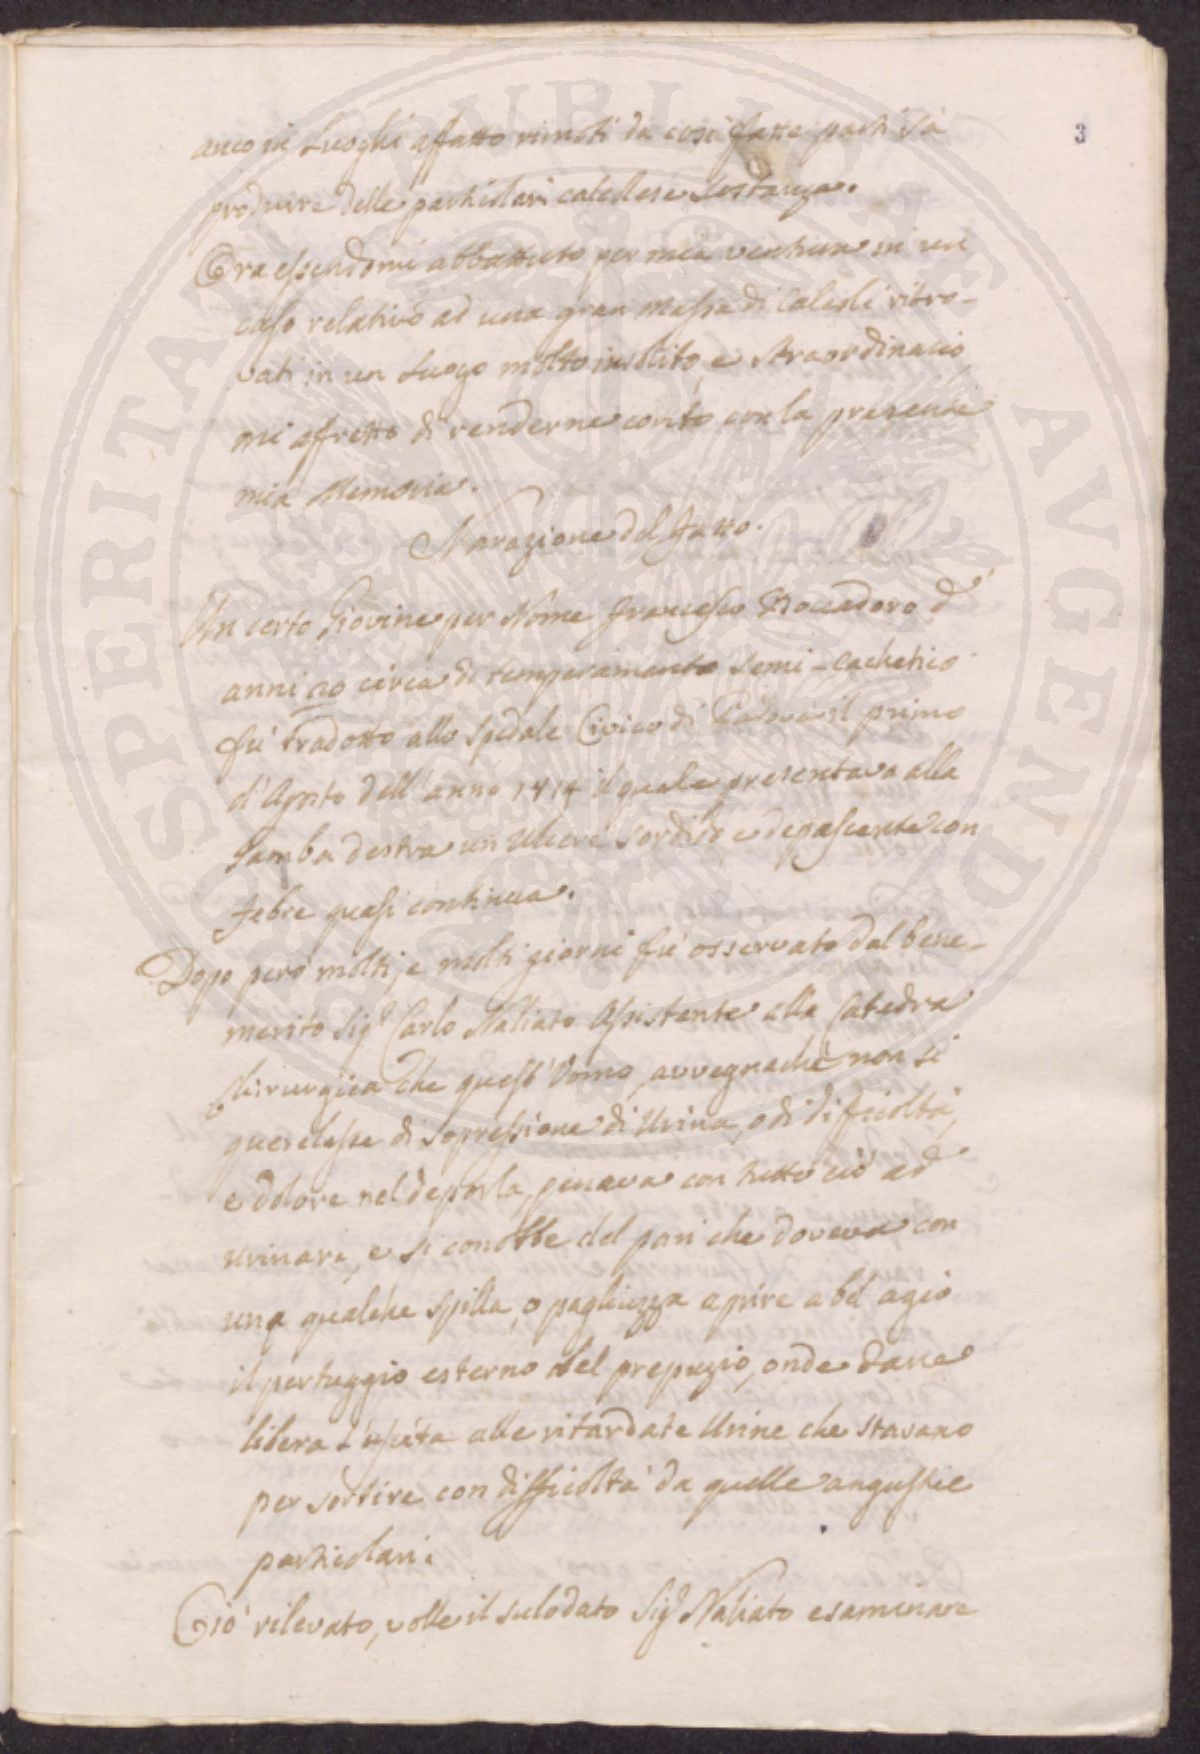 3
anco in Luoghi affatto rimoti da così fatte parti sa
produrre delle particolari calcolose sostanze.
Ora essendomi abbattuto per mia ventura in un
caso relativo ad una gran massa di Calcoli ritro-
vati in un Luogo molto insolito, e straordinario
mi affretto di renderne conto con la presente
mia Memoria.
Narazione del fatto.
Un certo Giovine per Nome Francesco Boccadoro d'
anni 20 circa di temperamento semi-cachetico
fu tradotto allo Spedale Civico di Padova il primo
d'Agosto dell'anno 1814 il quale presentava alla
Gamba destra un Ulcere sordido e depascente con
febre quasi continua.
Dopo però molti, e molti giorni fu osservato dal bene-
merito Sig.r Carlo Naliato Assistente alla Catedra
Chirurgica che quest'Uomo, avvegnachè non si
querelasse di sopressione di Urina, o di difficoltà,
e dolore nel deporla, penava con tutto ciò ad
urinare, e si conobbe del pari che doveva con
una qualche spilla, o pagliuzza aprire a bel agio
il pertuggio esterno del prepuzio, onde dare
libera l'uscita alle ritardate Urine che stavano
per sortire con difficoltà da quelle angustie
particolari.
Ciò rilevato, volle il sulodato Sig.r Naliato esaminare
SPERITATI PVBLICAE AVGENDAE